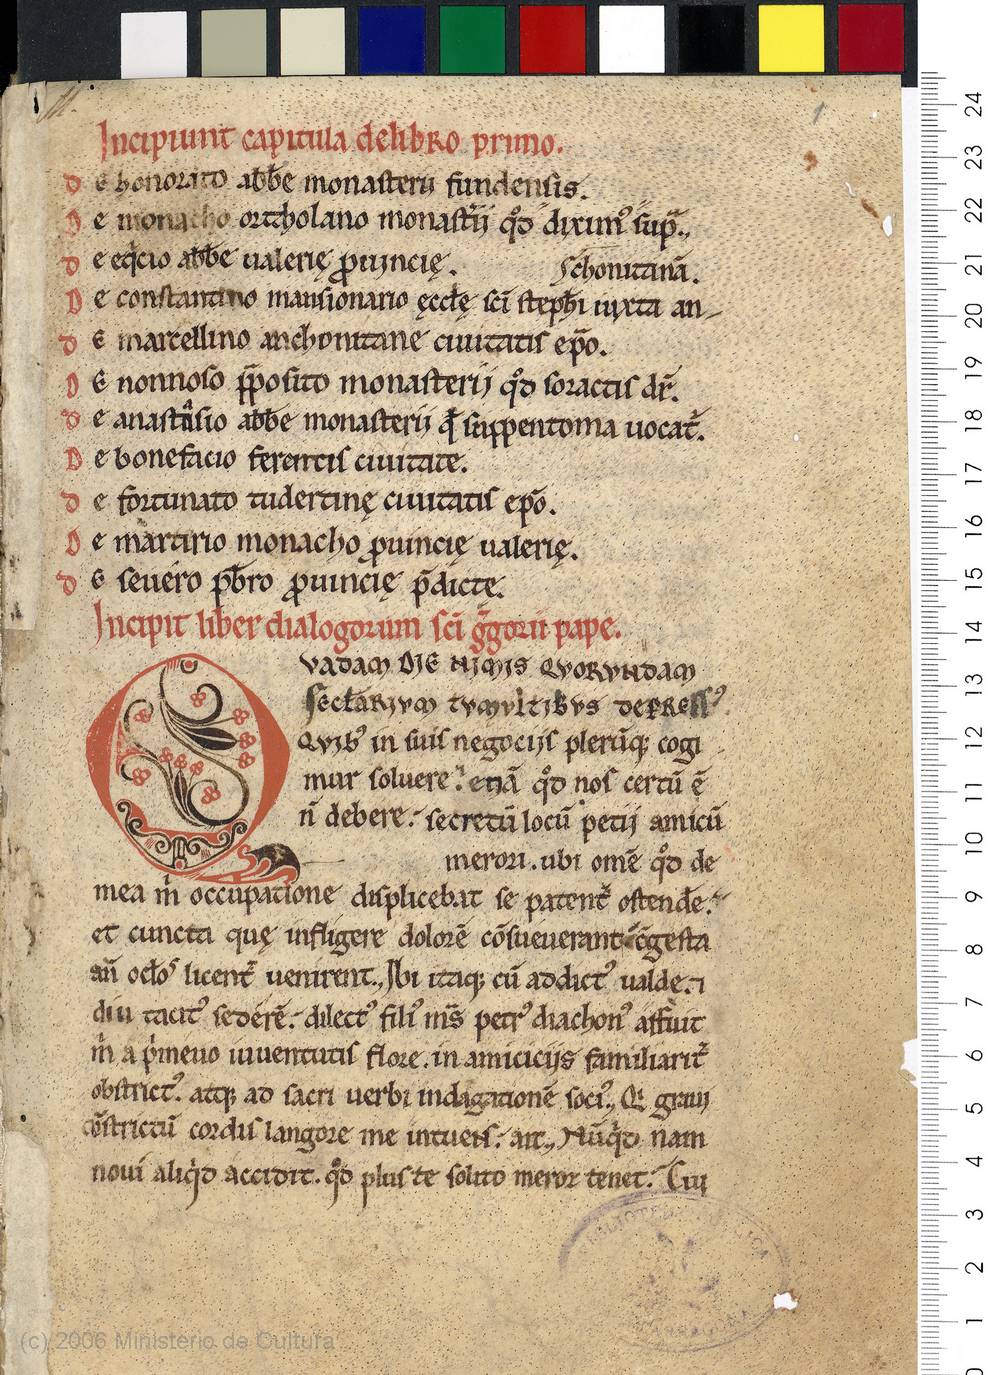 Incipiunt capitula de libro primo.
De honorato abb̄e monasterii fundensis.
De monacho ortholano monastr̄ij qd̄ diximꝰ sup̄.,
De eqcio abb̄e ualerię ꝓuincię. Schonitanā.
De constantino mansionario ęccłę sc̄i steph̄i iuxta an-
De marcellino anchonitane ciuitatis ep̄o.
De nonnoso p̄posito monasterij qd̄ soractis dr̄.
De anastasio abb̄e monasterii q̄ suppentoma uocat̄.
De bonefacio ferentis ciuitate.
De fortunato tudertinę ciuitatis ep̄o.
De martirio monacho ꝓuincię ualerię.
De seuero pb̄ro ꝓuincię p̄dictę.
Incipit liber dialogorum sc̄i ḡgorii pape.
QVADAM DIE NIMIS QVORVNDAM
Sectarivm tvmvltibvs depressꝰ
Qvibꝰ in suis negocijs plerūq; cogi
mur soluere etiā qd̄ nos certū ē
n̄ debere. secretū locū petij amicū
merori. ubi om̄e qd̄ de
mea m̄ occupatione displicebat se patent̄ ostendē.
et cuncta quę infligere dolorē cōsueuerant cōgesta
an̄ oclōs licent̄ uenirent., Ibi itaq; cū addictꝰ ualde. ⁊
diu tacitꝰ sederē. dilectꝰ filiꝰ m̄s petrꝰ diachonꝰ affuit
m̄ a p̄meuo iuuentutis flore. in amicicijs familiarit̄
obstrictꝰ. atq; ad sacri uerbi indagationē sociꝰ., Qi graui
cōstrictū cordis langore me intuens. ait., Nūqd̄ nam
noui aliqd accidit. qd̄ plus te solito meror tenet. Cui
(c) 2006 Ministerio de Cultura
24
23
22
21
20
19
18
17
16
15
14
13
12
11
10
9
8
7
6
5
4
3
2
1
0